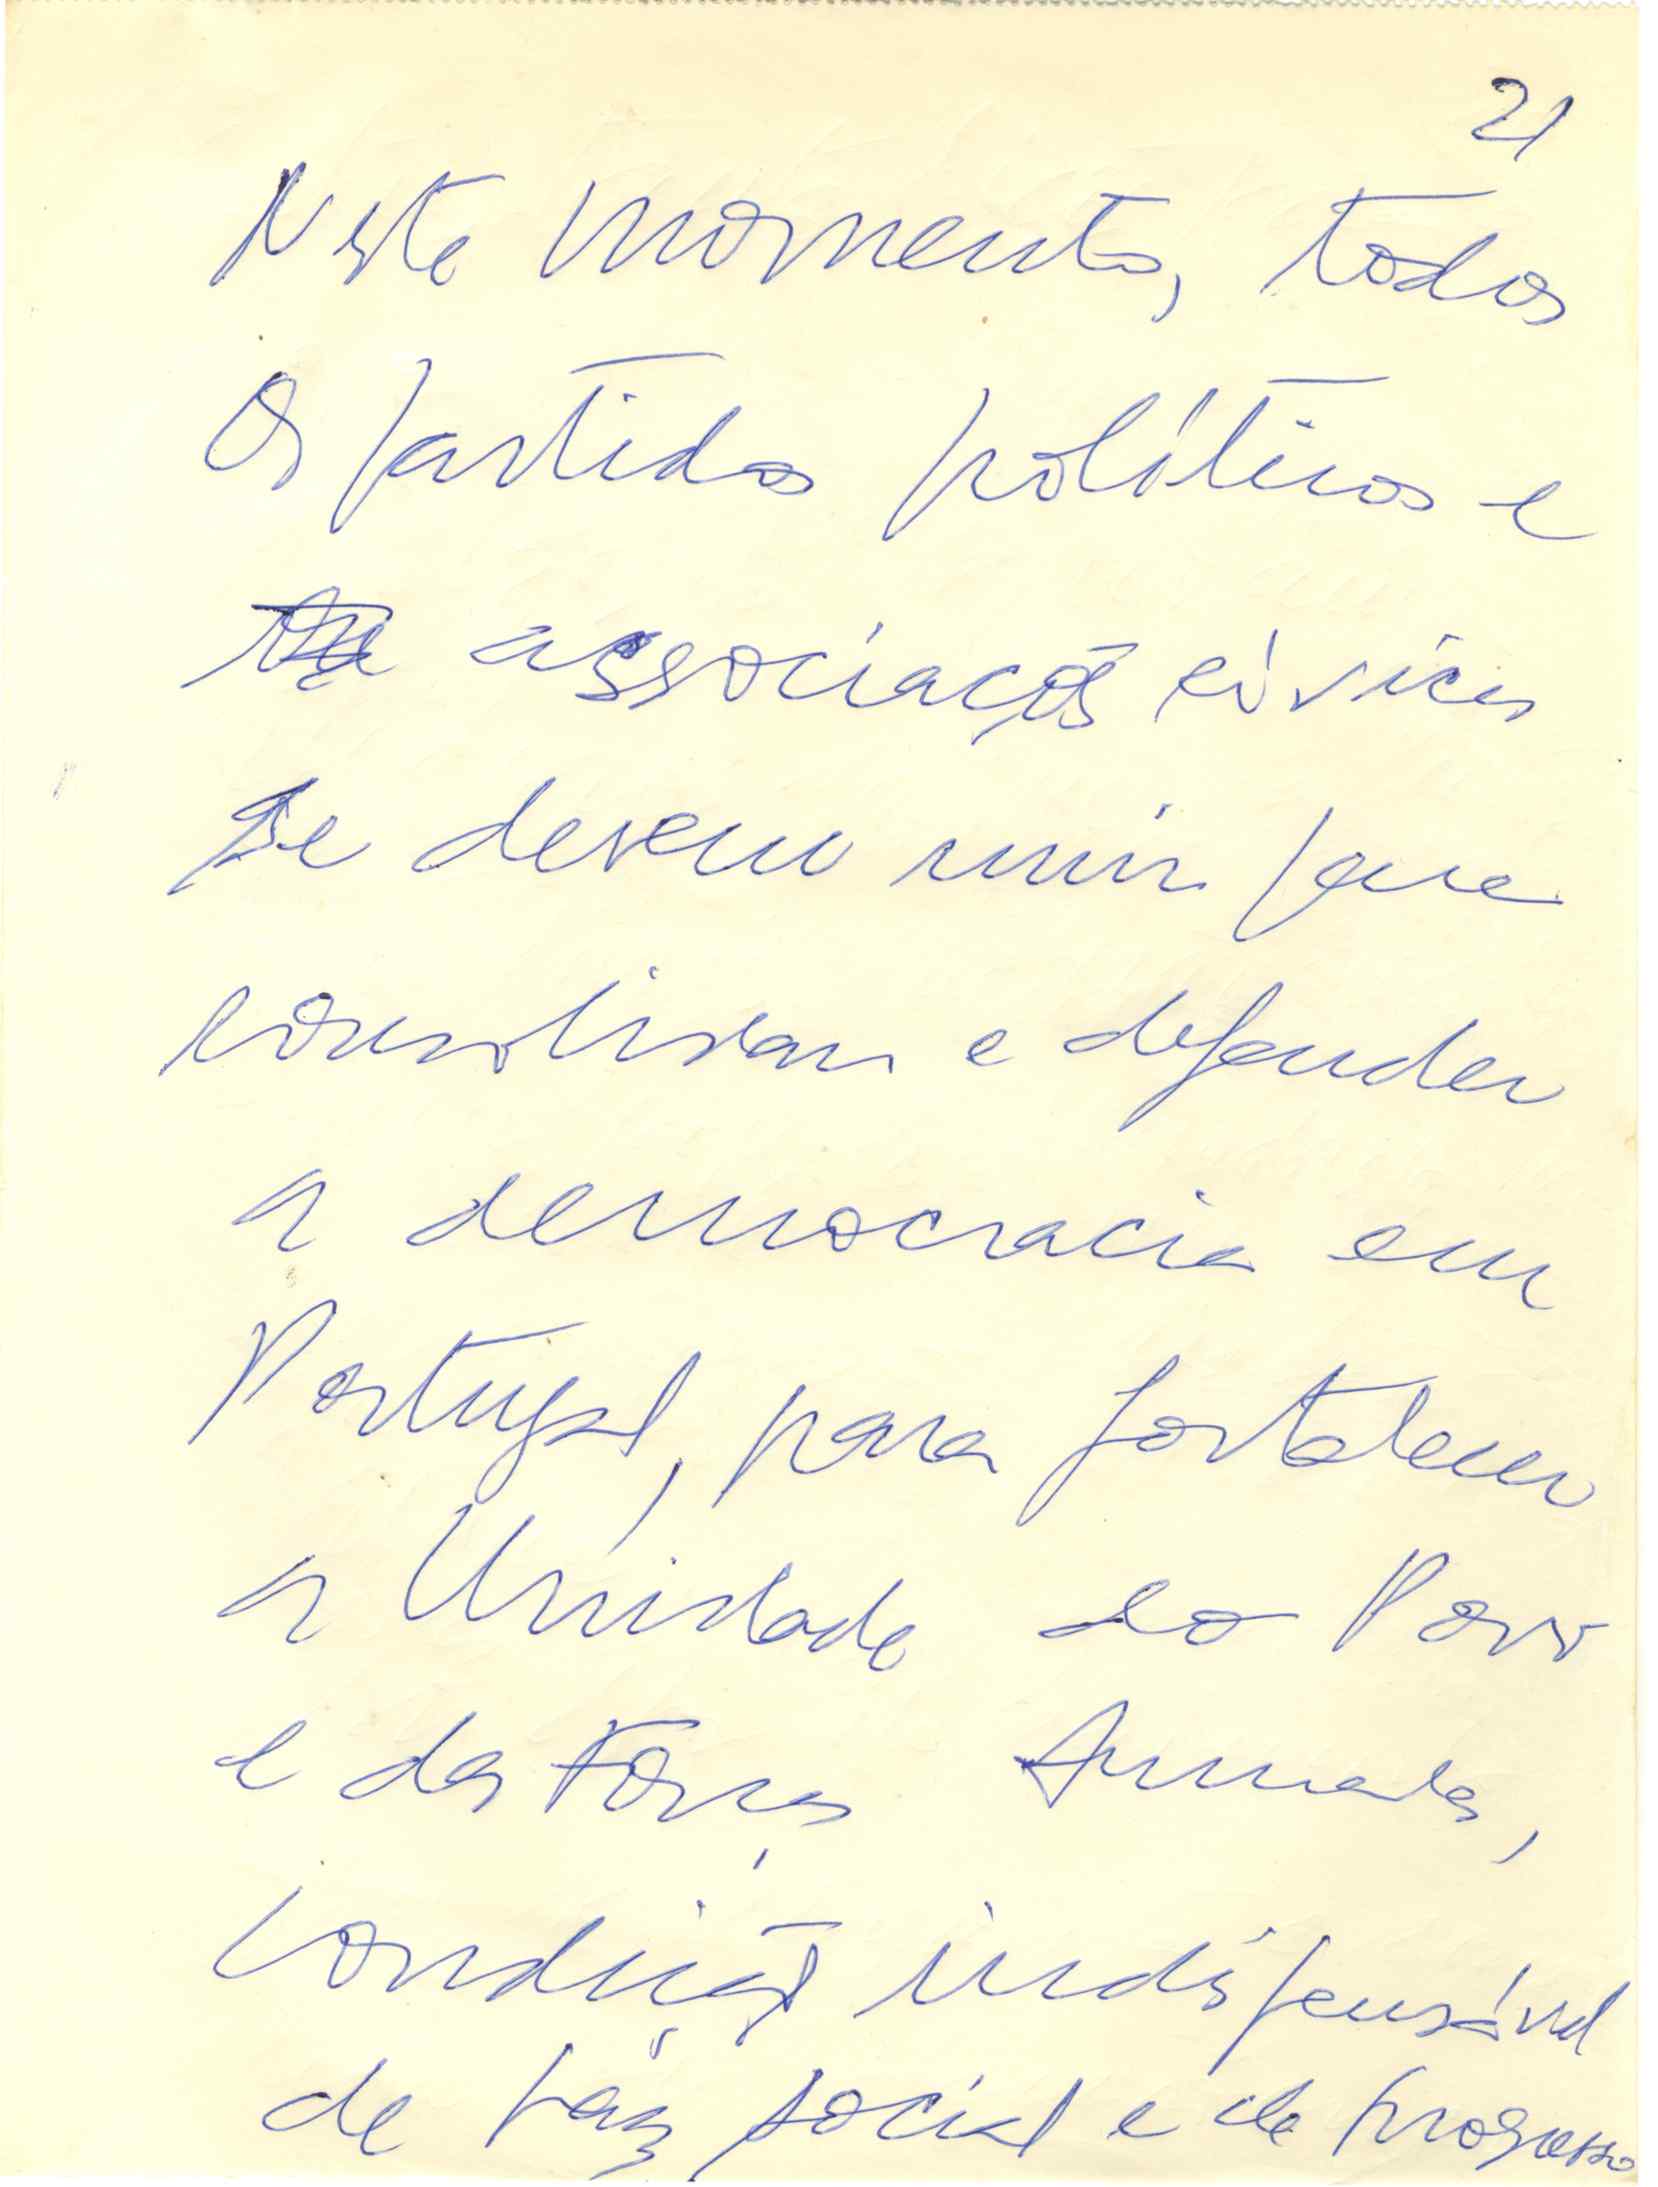 21
Neste momento, todos
os partidos políticos e
associações cívicas
se devem unir para
consolidar e defender
a democracia em
Portugal, para fortalecer
a Unidade do Povo
e das Forças Armadas,
condição indispensável
de paz social e de progresso